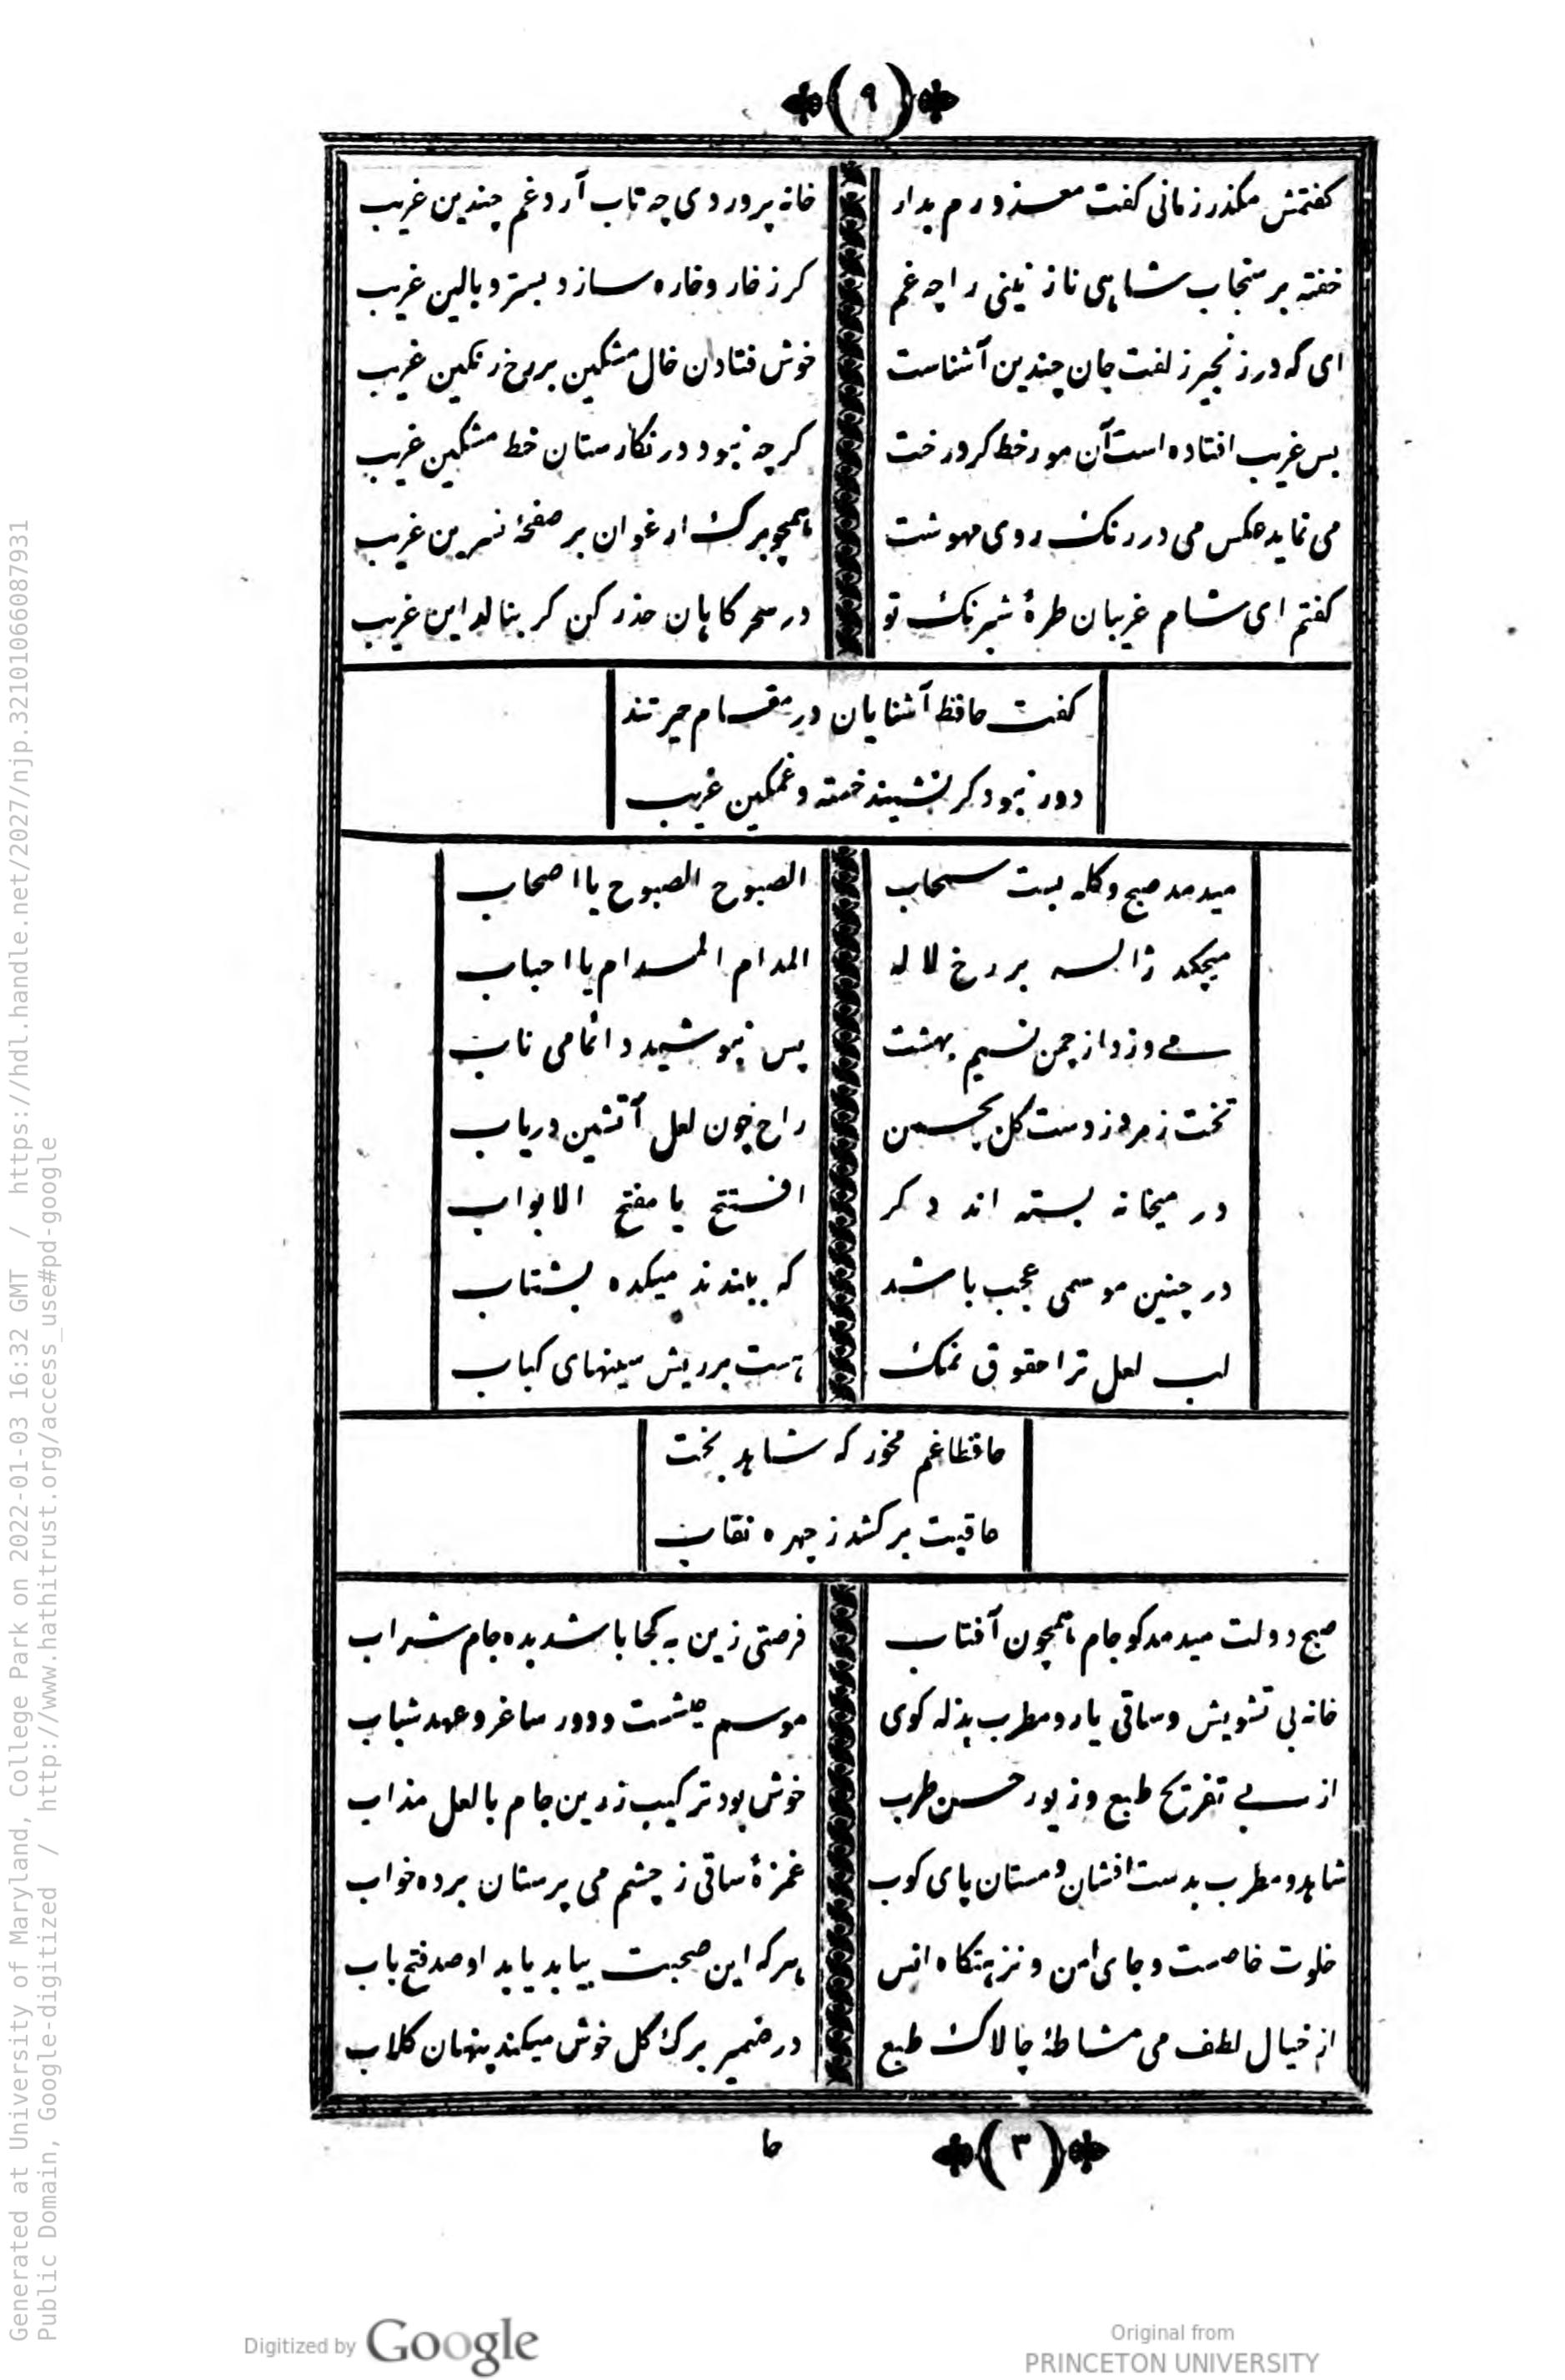 (٩)
کفتمش مکذر زمانی کفت معذورم بدار
خانه پروردی چه تاب آرد غم چندین غریب
خفته بر سنجاب شاهی نازنینی را چه غم
کرز خار وخاره سازد بستر و بالین غریب
ای که در زنجیر زلفت جان چندین آشناست
خوش فتاد ن خال مشکین بررخ رنکین غریب
بس غریب افتاده است آن مور خط کرد رخت
کرچه نبود در نکارستان خط مشکین غریب
می نماید عکس می در رنک روی مهوشت
همچو برک ارغوان بر صفحهٔ نسرین غریب
کفتم ای شام غریبان طرهٔ شبرنک تو
در سحرکاهان حذر کن کر بنالد این غریب
کفت حافظ آشنایان در مقام حیرتند
دور نبود کر نشیند خسته و غمکین غریب
میدمد صبح وکله بست سحاب
الصبوح الصبوح یا اصحاب
میچکد ژاله بر رخ لاله
المدام المدام یا احباب
می وزد از چمن نسیم بهشت
پس بنوشید دائما می ناب
تخت زمرد زدست کل بچمن
راح چون لعل آتشین دریاب
در میخانه بسته اند دکر
افتتح یا مفتح الابواب
در چنین موسمی عجب باشد
که ببندند میکده بشتاب
لب لعل ترا حقوق نمک
هست برریش سینهای کباب
حافظا غم مخور که شاهد بخت
عاقبت برکشد زچهره نقاب
صبح دولت میدمد کو جام همچون آفتاب
فرصتی زین به کجا باشد بده جام شراب
خانه بی تشویش وساقی یار ومطرب بذله کوی
موسم عیشست ودور ساغر وعهد شباب
از پی تفریح طبع وزیور حسن طرب
خوش بود ترکیب زرین جام با لعل مذاب
شاهد ومطرب بدست افشان ومستان پای کوب
غمزهٔ ساقی ز چشم می پرستان برده خواب
خلوت خاصست وجای امن ونزهتکاه انس
هرکه این صحبت بیابد یابد او صد فتح باب
از خیال لطف می مشاطهٔ چالاک طبع
در ضمیر برک کل خوش میکند پنهان کلاب
(٣)
حا
Generated at University of Maryland, College Park on 2022-01-03 16:32 GMT / https://hdl.handle.net/2027/njp.32101066087931
Public Domain, Google-digitized / http://www.hathitrust.org/access_use#pd-google
Digitized by Google
Original from
PRINCETON UNIVERSITY